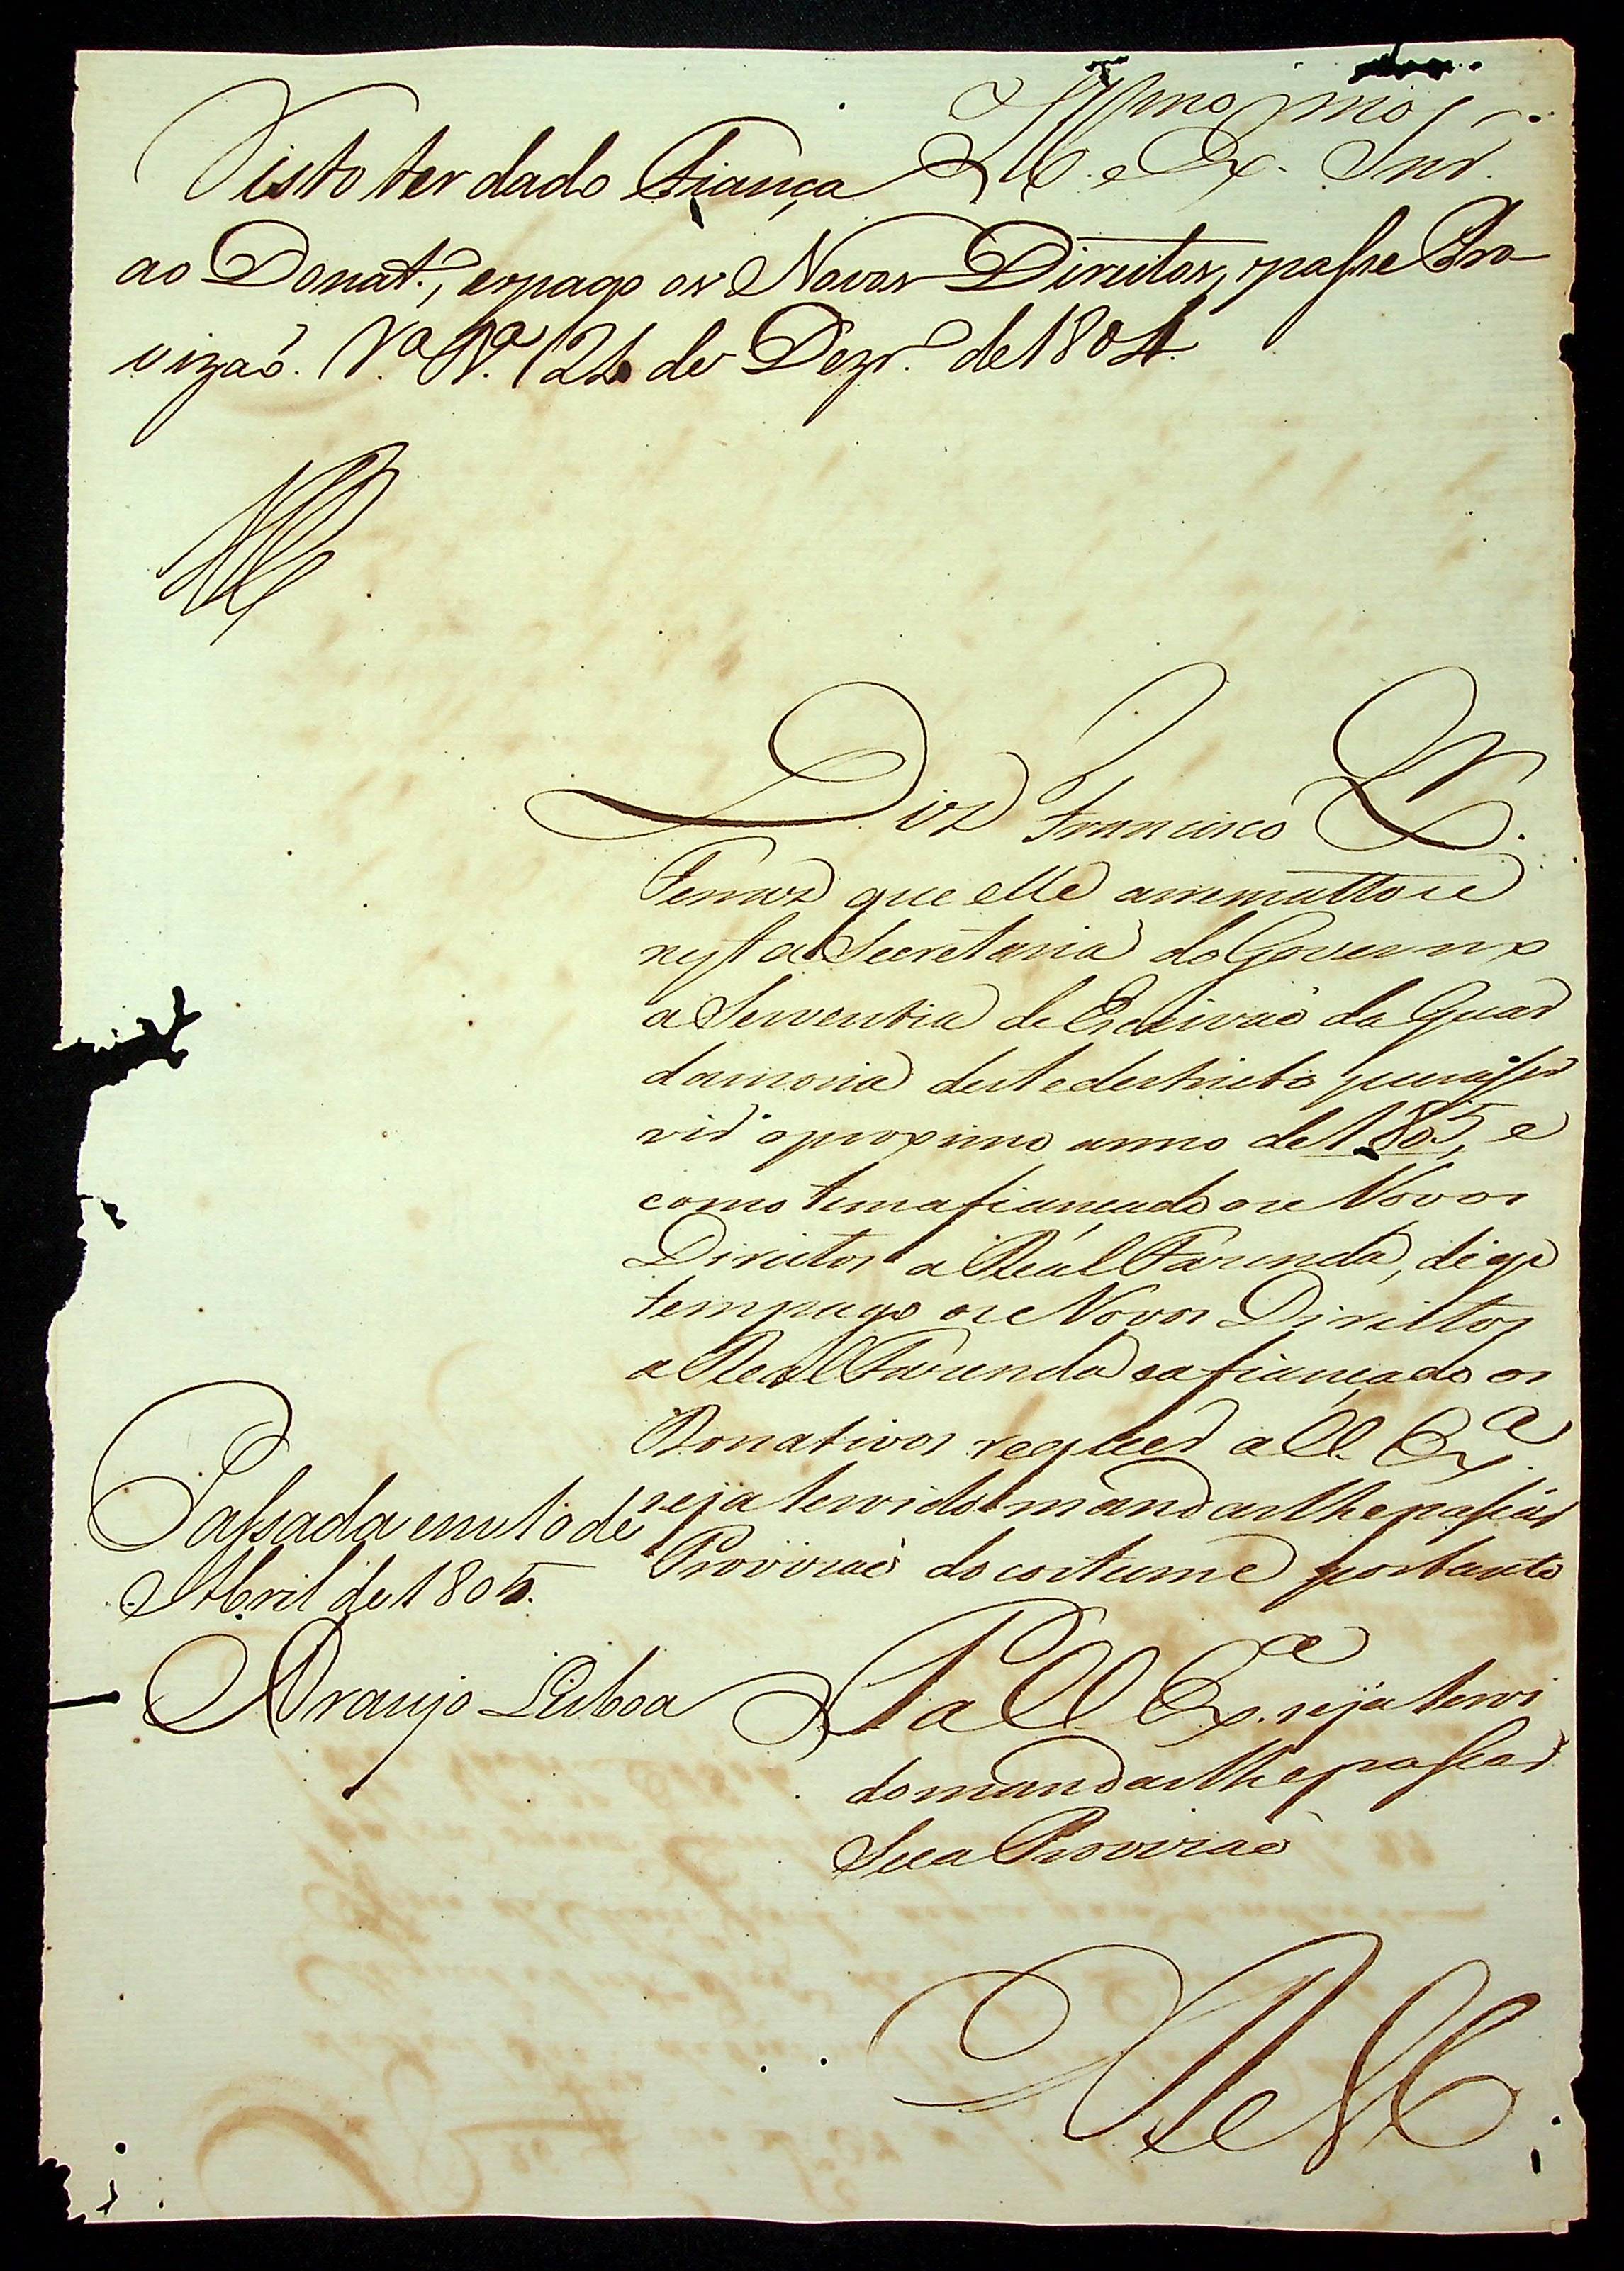 Illmo e Exmo Snr.
Visto ter dado Fiança
ao Donat.º, e pago os Novos Direitos, passe Pro-
vizaõ. Vª Rª 24 de Dezr.º de 1804
Diz Francisco
Ferraz que elle arrematou
nesta Secretaria do Governo
a Serventia de Escrivaõ da Guar
damoria deste destricto para
o proximo anno de 1805, e
como tem afiançado os Novos
Direitos a Real Fazenda, digo
tem pago os Novos Direitos
a Real Fazenda e afiançado os
Donativos requer a V. Exª
seja servido mandar lhe passar
Provizaõ do costume portanto
Passada em 10 de
Abril de 1805.
Araujo Lisboa
P a V. Exª seja servi
do mandar lhe passar
Sua Provizaõ
E R M